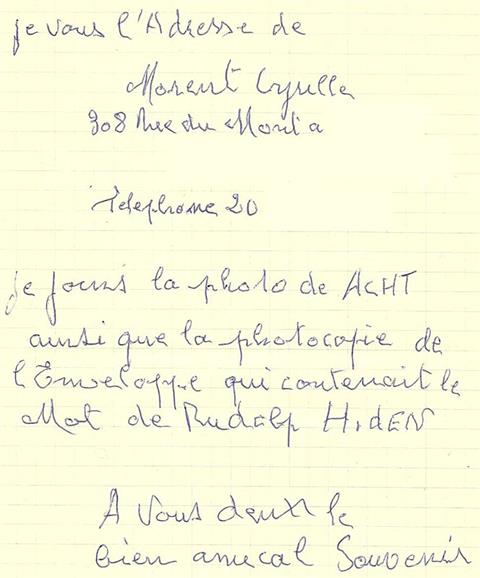 je vous l'Adresse de
Morent Cyrille
308 Rue du Monta
Téléphone 20
je joins la photo de ACHT
ainsi que la photocopie de
l'Enveloppe qui contenait le
Mot de Rudolp HidEN
A Vous deux le
bien amical Souvenir